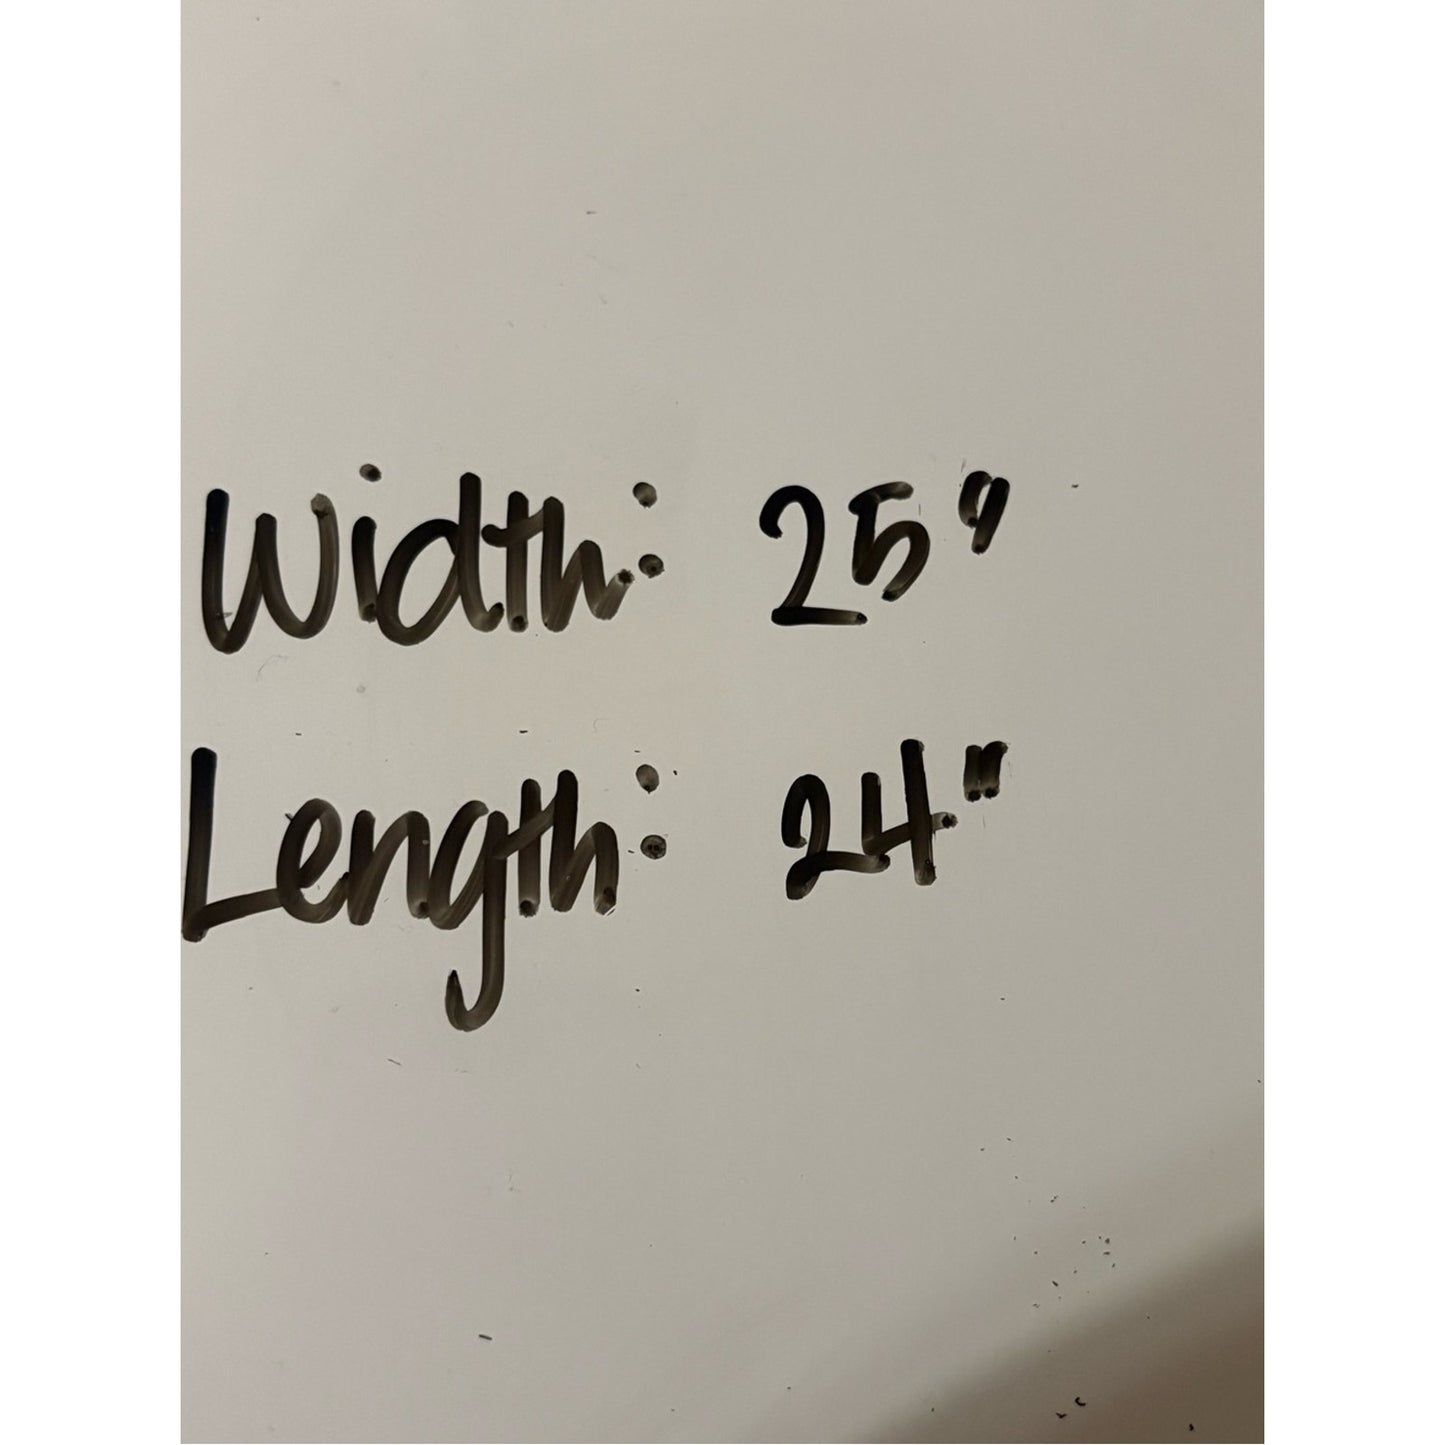 Width: 25"
Length: 24"